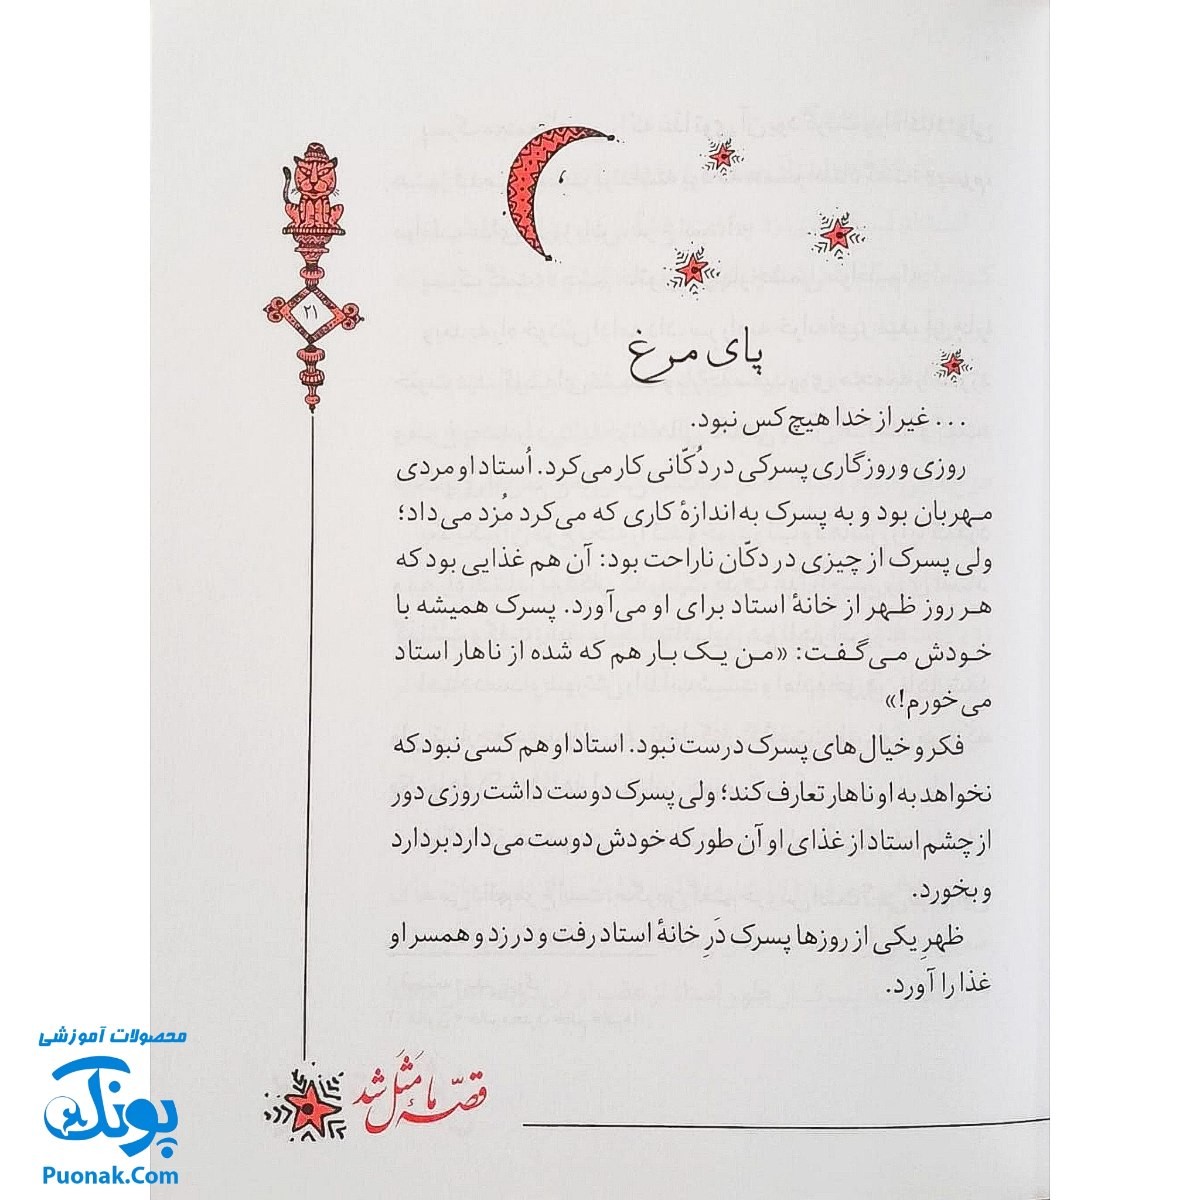 ۲۱
پای مرغ
... غیر از خدا هیچ کس نبود.
روزی و روزگاری پسرکی در دُکّانی کار می‌کرد. اُستاد او مردی
مهربان بود و به پسرک به‌اندازهٔ کاری که می‌کرد مُزد می‌داد؛
ولی پسرک از چیزی در دکّان ناراحت بود: آن هم غذایی بود که
هر روز ظهر از خانهٔ استاد برای او می‌آورد. پسرک همیشه با
خودش می‌گفت: «من یک بار هم که شده از ناهار استاد
می‌خورم!»
فکر و خیال‌های پسرک درست نبود. استاد او هم کسی نبود که
نخواهد به او ناهار تعارف کند؛ ولی پسرک دوست داشت روزی دور
از چشم استاد از غذای او آن طور که خودش دوست می‌دارد بردارد
و بخورد.
ظهرِ یکی از روزها پسرک دَرِ خانهٔ استاد رفت و در زد و همسر او
غذا را آورد.
قصّهٔ ما مَثَل شد
محصولات آموزشی
پونک
Puonak.Com